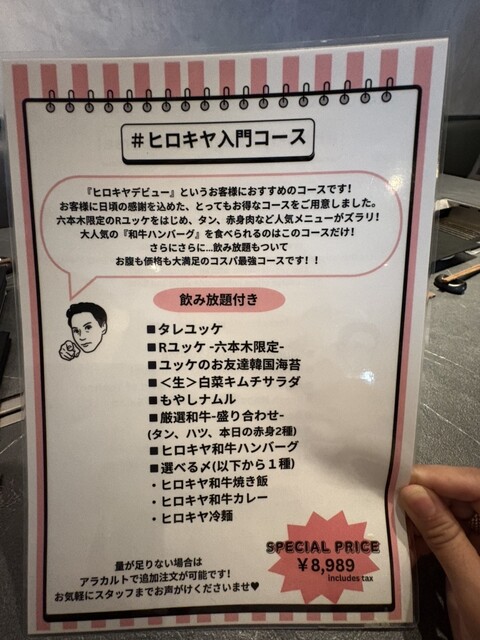 #ヒロキヤ入門コース
『ヒロキヤデビュー』というお客様におすすめのコースです!
お客様に日頃の感謝を込めた、とってもお得なコースをご用意しました。
六本木限定のRユッケをはじめ、タン、赤身肉など人気メニューがズラリ!
大人気の『和牛ハンバーグ』を食べられるのはこのコースだけ!
さらにさらに...飲み放題もついて
お腹も価格も大満足のコスパ最強コースです!!
飲み放題付き
■タレユッケ
■Rユッケ -六本木限定-
■ユッケのお友達韓国海苔
■<生>白菜キムチサラダ
■もやしナムル
■厳選和牛-盛り合わせ-
(タン、ハツ、本日の赤身2種)
■ヒロキヤ和牛ハンバーグ
■選べる〆(以下から1種)
・ヒロキヤ和牛焼き飯
・ヒロキヤ和牛カレー
・ヒロキヤ冷麺
SPECIAL PRICE
¥8,989
includes tax
量が足りない場合は
アラカルトで追加注文が可能です!
お気軽にスタッフまでお声がけくださいませ♥